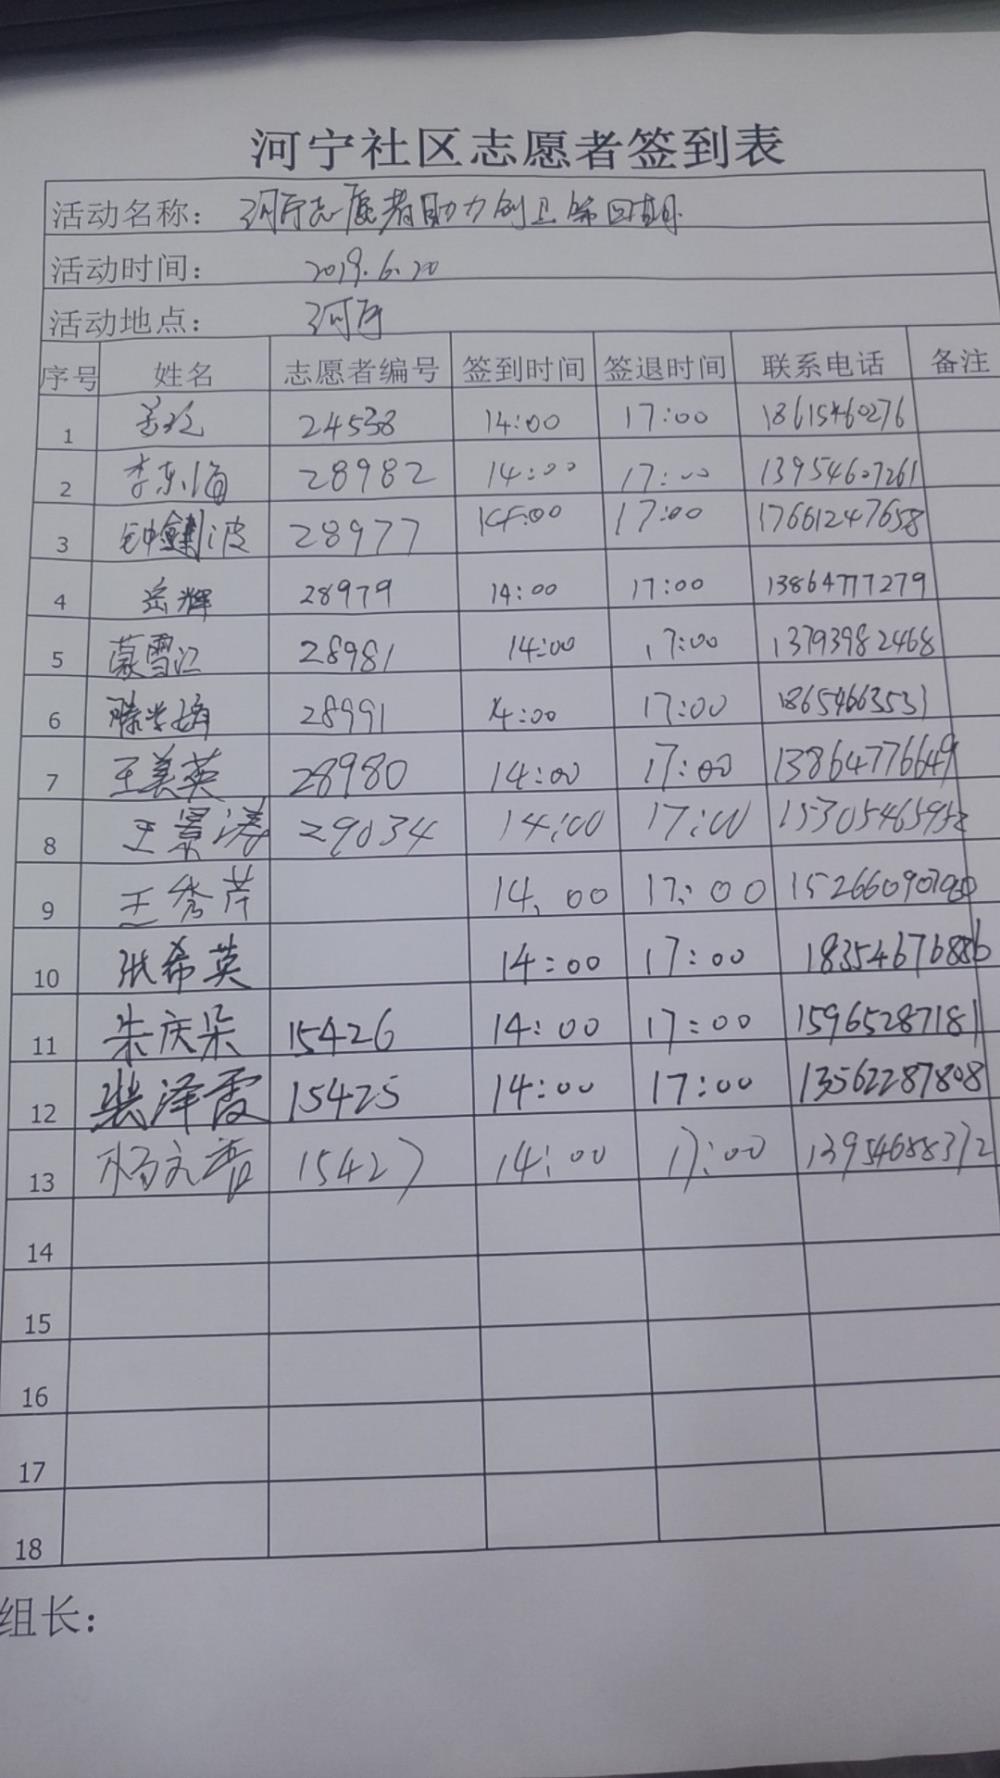 河宁社区志愿者签到表
活动名称： 河宁志愿者助力创卫第四期
活动时间： 2019.6.20
活动地点： 河宁
序号 姓名 志愿者编号 签到时间 签退时间 联系电话 备注
1 24538 14:00 17:00 18615460276
2 李东海 28982 14:00 17:00 13954607261
3 钟健波 28977 14:00 17:00 17661247658
4 岳辉 28979 14:00 17:00 13864777279
5 蒙雪江 28981 14:00 17:00 13793982468
6 28991 14:00 17:00 18654663531
7 王美英 28980 14:00 17:00 13864776649
8 王景涛 29034 14:00 17:00 15305465952
9 王秀芹 14:00 17:00
10 张希英 14:00 17:00 18354676886
11 朱庆朵 15426 14:00 17:00 15965287181
12 裴泽霞 15425 14:00 17:00 13562287808
13 杨文香 15427 14:00 17:00 13954688372
14
15
16
17
18
组长：